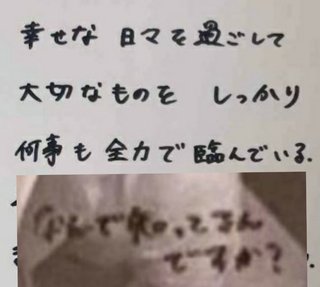 幸せな 日々を過ごして
大切なものを しっかり
何事も 全力で 臨んでいる.
なんで知ってるん
ですか?